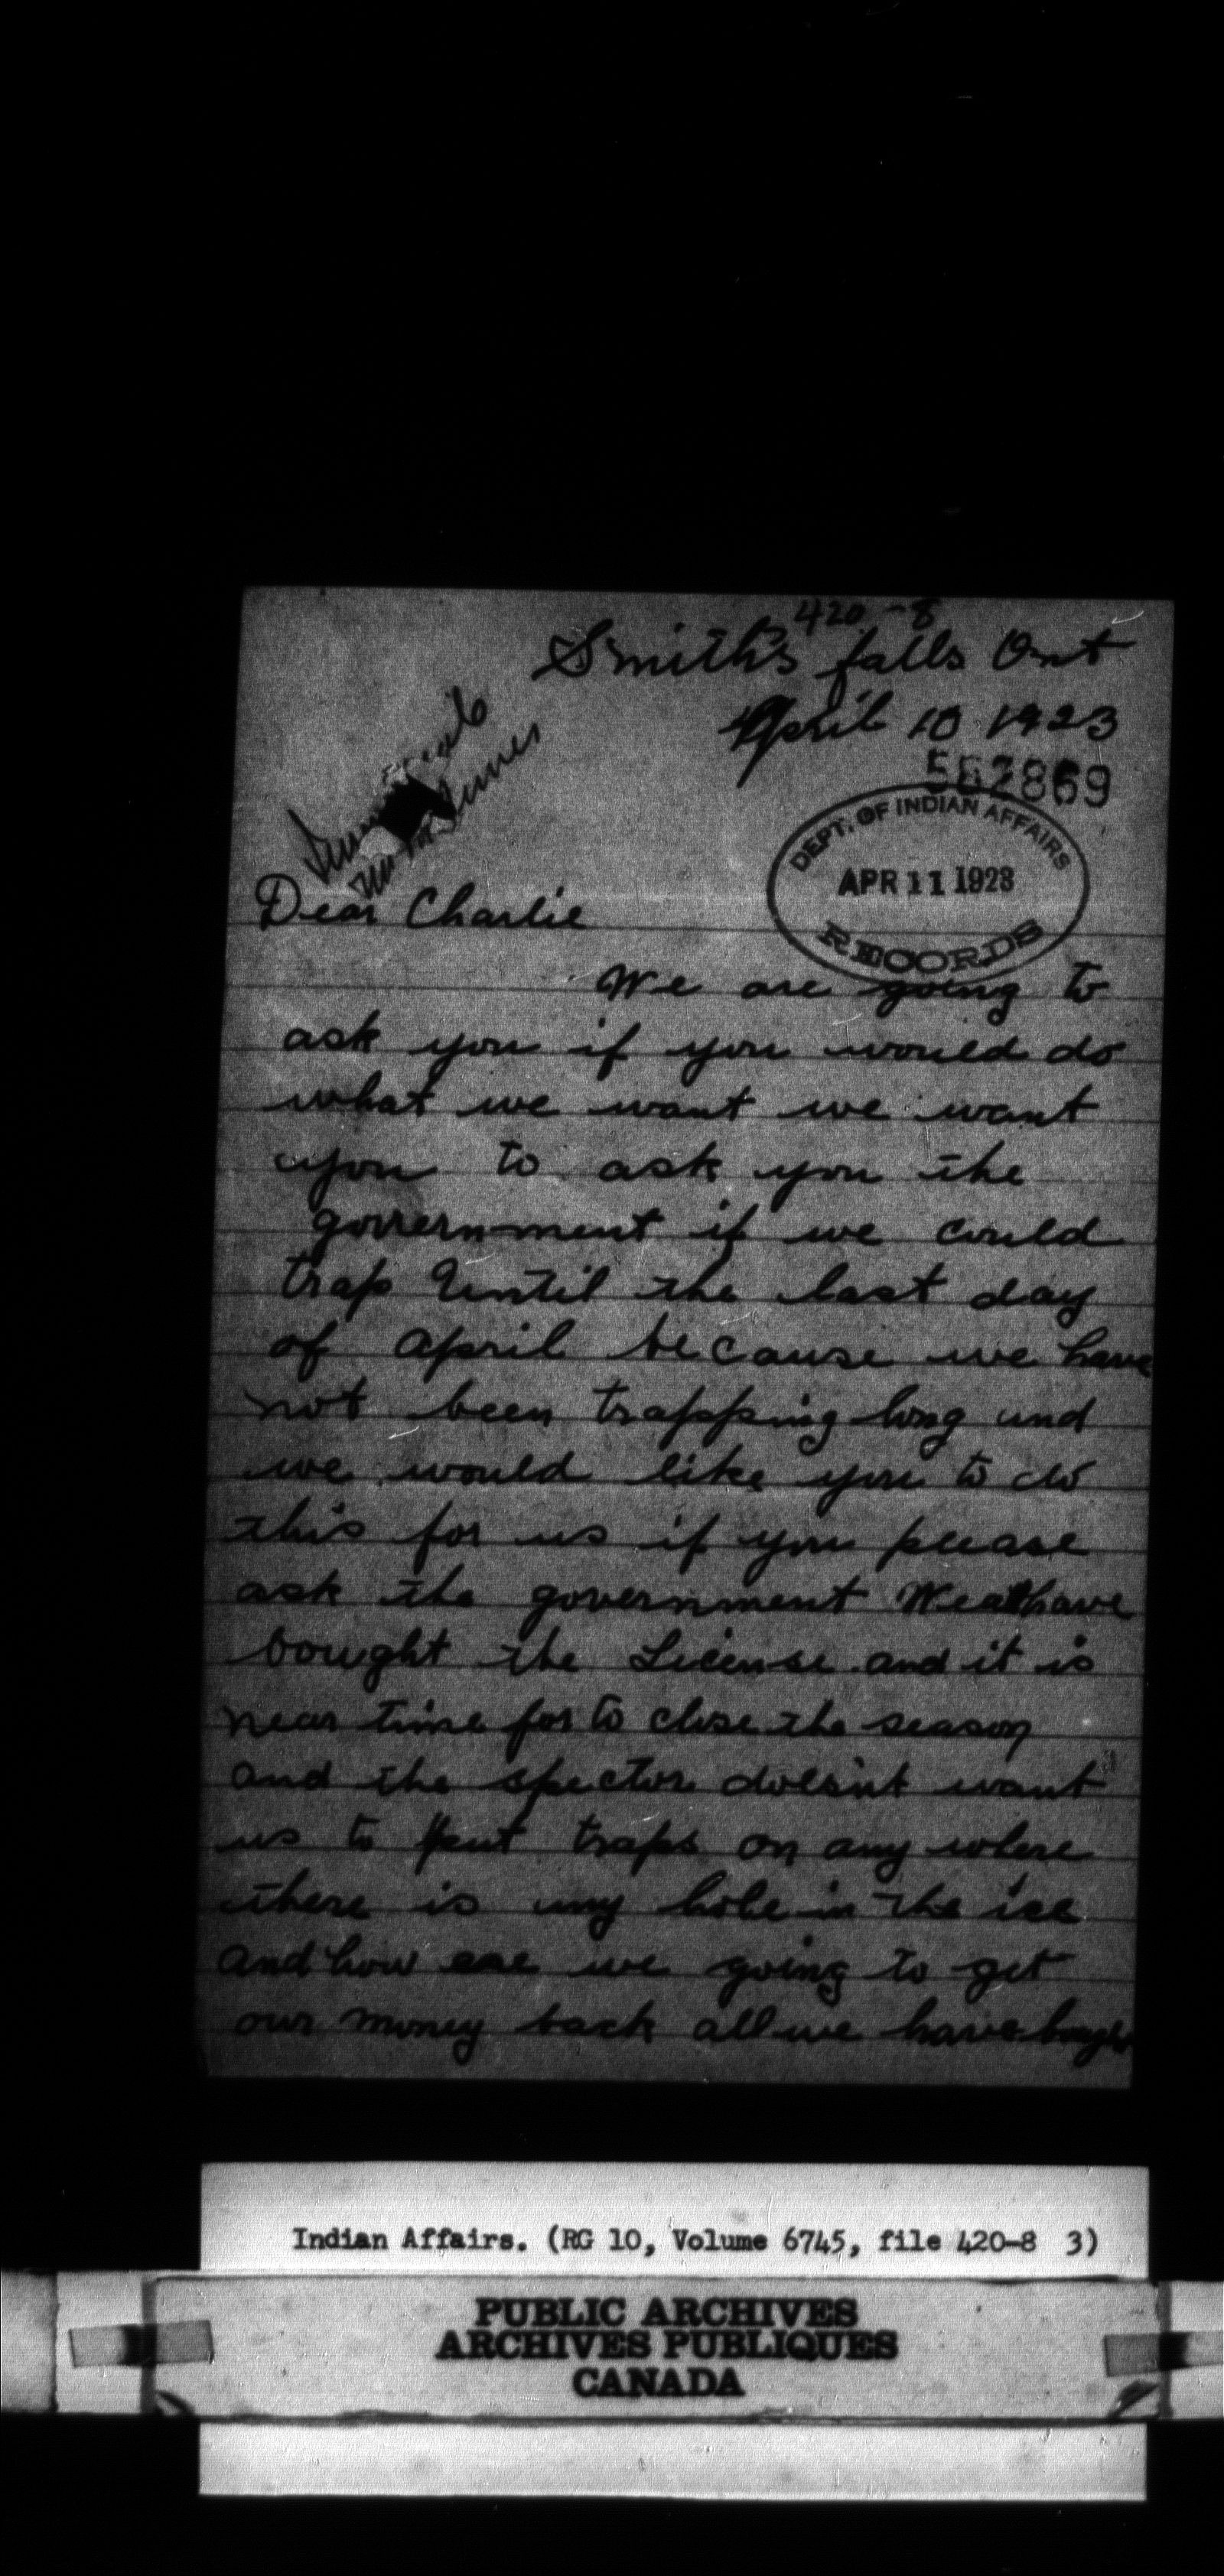 420-8
Smith's falls Ont
April 10 1923
562869
DEPT. OF INDIAN AFFAIRS
APR 11 1923
RECORDS
Dear Charlie
We are going to
ask you if you would do
what we want we want
you to ask you the
government if we could
trap Until the last day
of April because we have
not been trapping long and
we would like you to do
this for us if you please
ask the government We have
bought the License and it is
near time for to close the season
and the spector doesn't want
us to put traps on any where
there is any hole in the ice
and how are we going to get
our money back all we have
Indian Affairs. (RG 10, Volume 6745, file 420-8 3)
PUBLIC ARCHIVES
ARCHIVES PUBLIQUES
CANADA